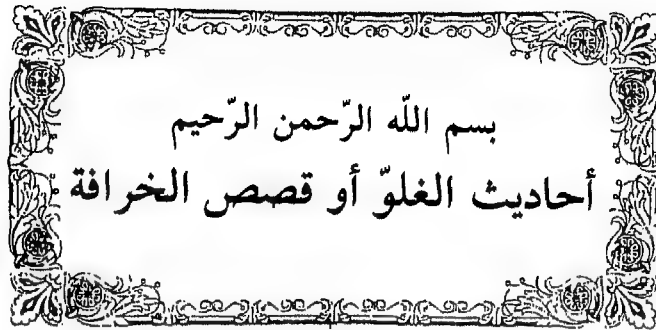 بسم اللّه الرّحمن الرّحيم
أحاديث الغلوّ أو قصص الخرافة